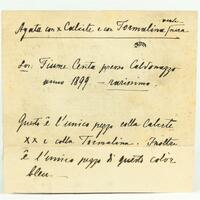 verde
Agata con x Calcite e con Tormalina/nera
Loc. Fiume Centa presso Caldonazzo
anno 1899 — rarissimo.
Questo è l'unico pezzo colla Calcite
XX e colla Tormalina. Inoltre
è l'unico pezzo di questo color
bleu.